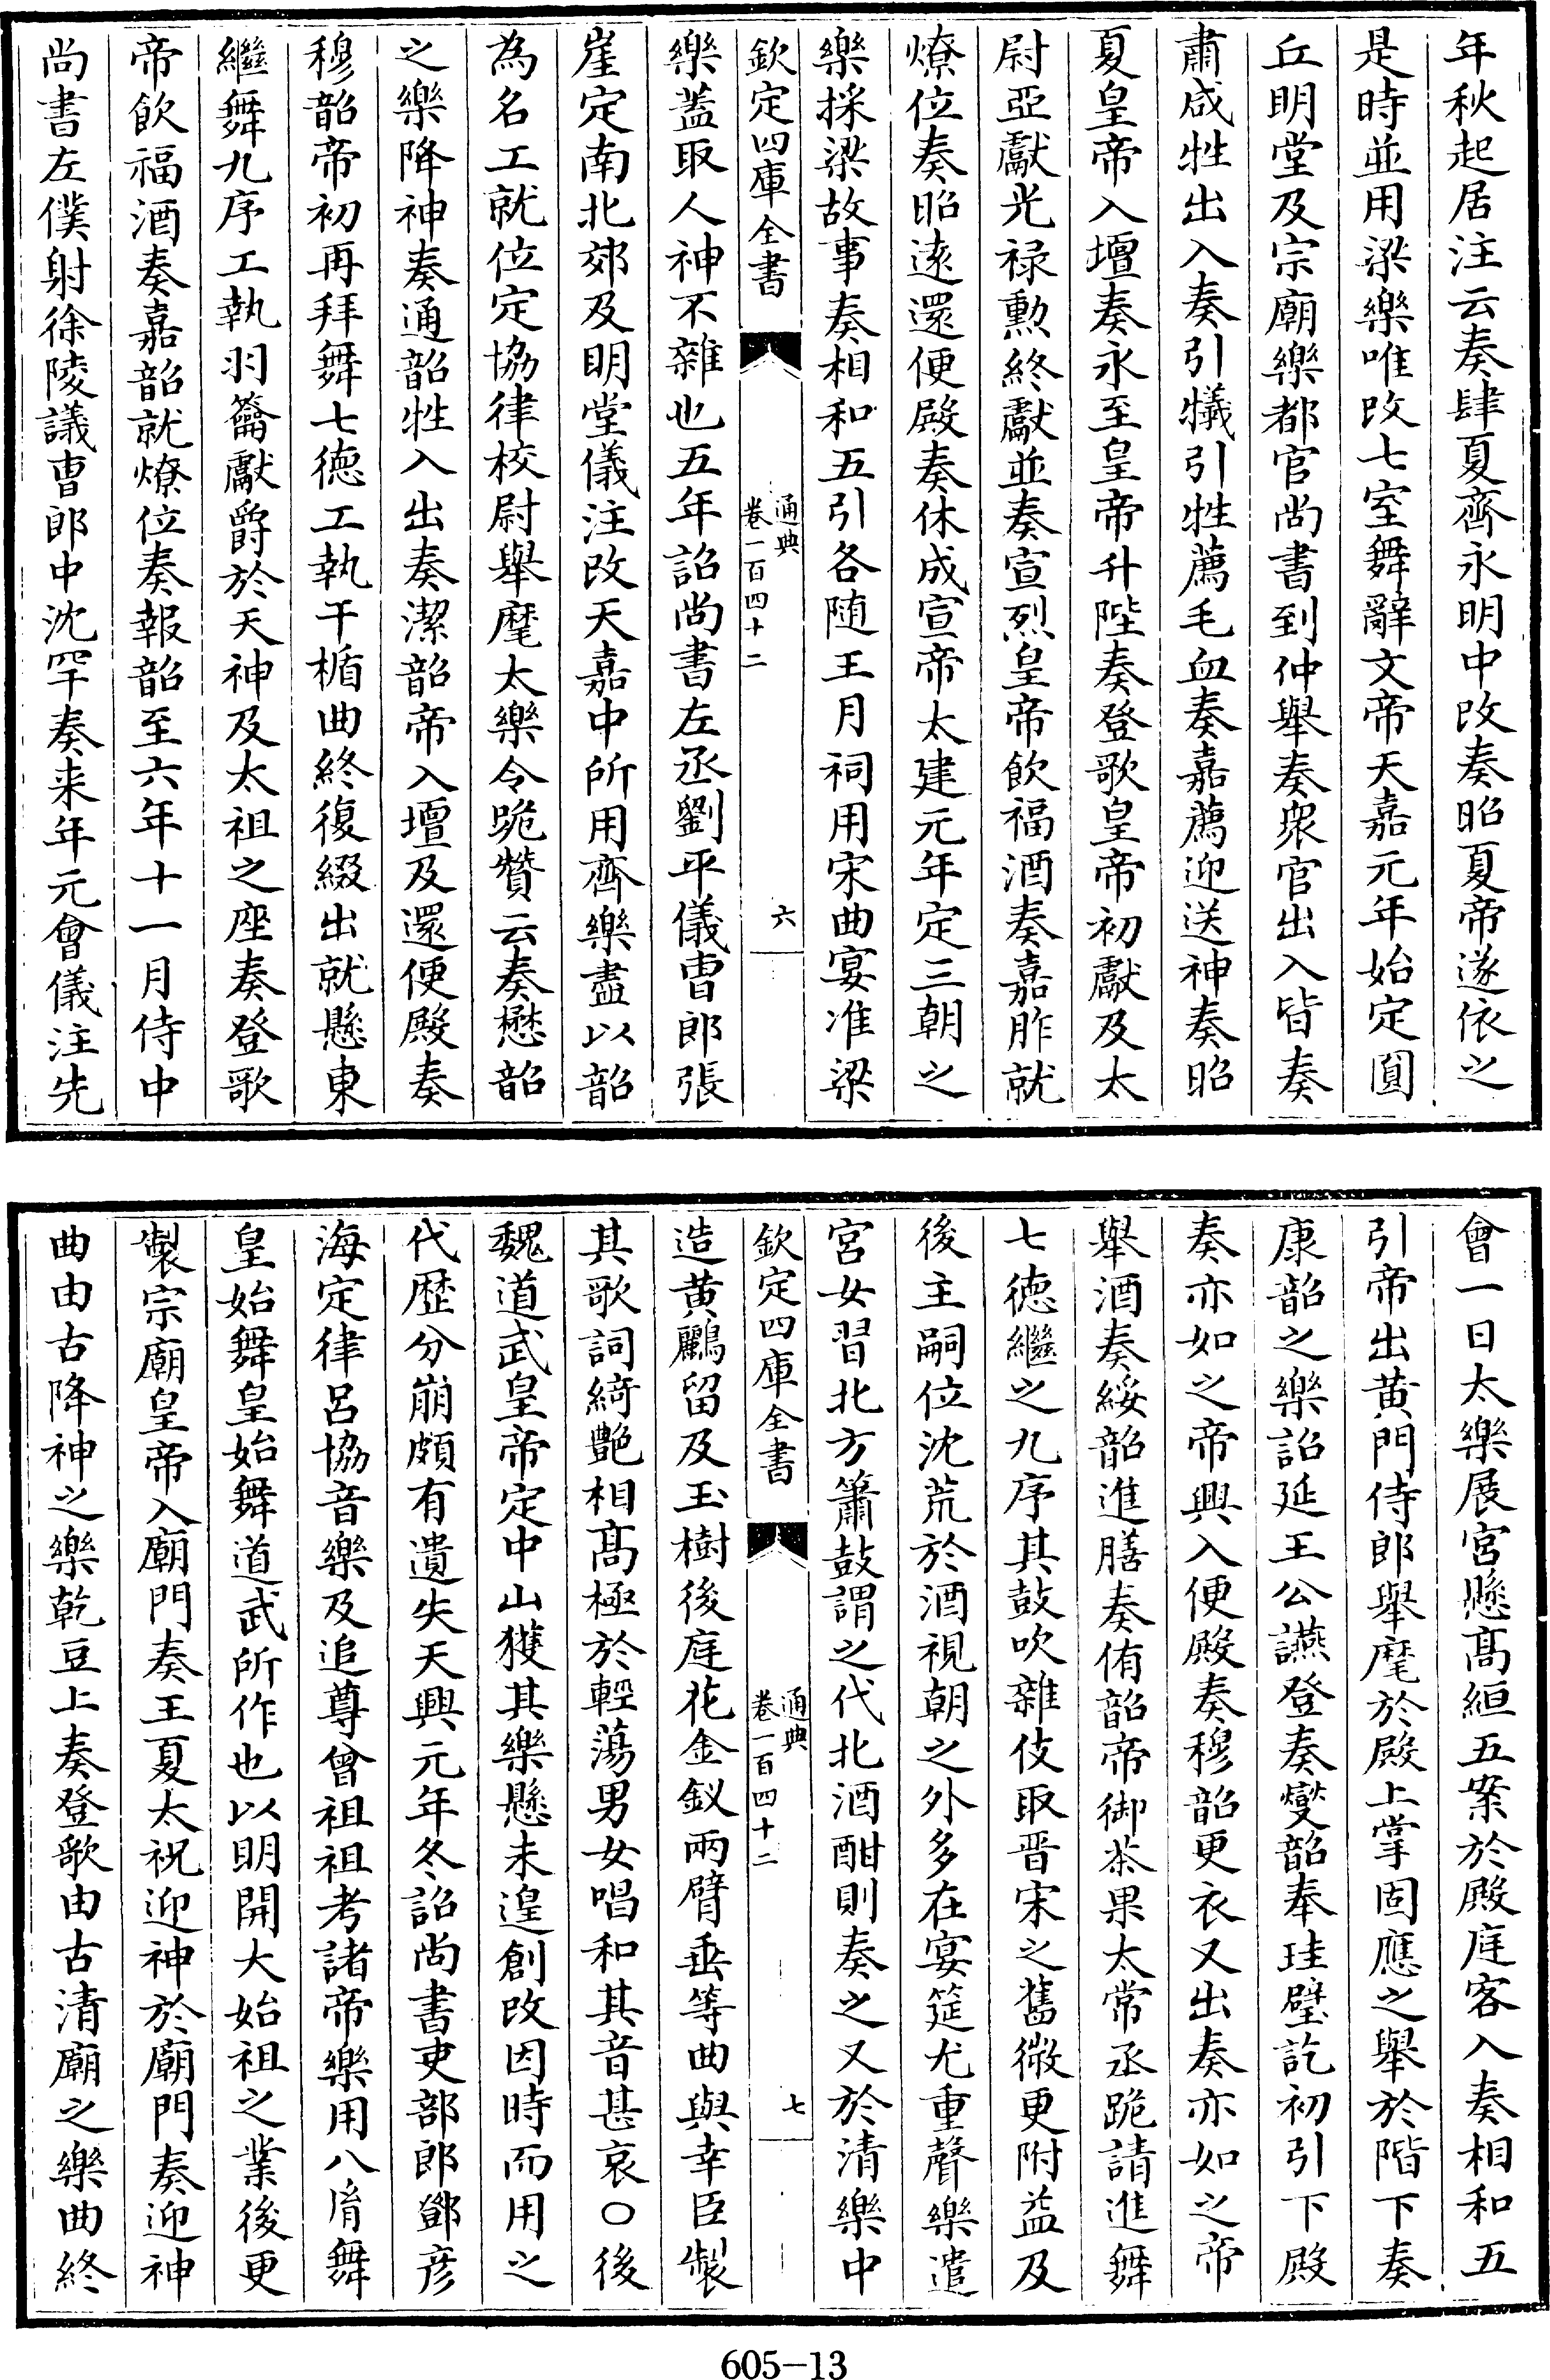 年秋起居注云奏肆夏齊永明中改奏昭夏帝遂依之
是時並用梁樂唯改七室舞辭文帝天嘉元年始定圓
丘明堂及宗廟樂都官尚書到仲舉奏衆官出入皆奏
肅咸牲出入奏引犧引牲薦毛血奏嘉薦迎送神奏昭
夏皇帝入壇奏永至皇帝升陛奏登歌皇帝初獻及太
尉亞獻光祿勲終獻並奏宣烈皇帝飲福酒奏嘉胙就
燎位奏昭遠還便殿奏休成宣帝太建元年定三朝之
樂採梁故事奏相和五引各随王月祠用宋曲宴准梁
欽定四庫全書
通典
卷一百四十二
六
樂蓋取人神不雜也五年詔尚書左丞劉平儀曹郎張
崖定南北郊及明堂儀注改天嘉中所用齊樂盡以韶
為名工就位定協律校尉舉麾太樂令跪贊云奏懋韶
之樂降神奏通韶牲入出奏潔韶帝入壇及還便殿奏
穆韶帝初再拜舞七德工執干楯曲終復綴出就懸東
繼舞九序工執羽籥獻爵於天神及太祖之座奏登歌
帝飲福酒奏嘉韶就燎位奏報韶至六年十一月侍中
尚書左僕射徐陵議曹郎中沈罕奏来年元會儀注先
會一日太樂展宮懸高絙五案於殿庭客入奏相和五
引帝出黄門侍郎舉麾於殿上掌固應之舉於階下奏
康韶之樂詔延王公讌登奏變韶奉珪璧訖初引下殿
奏亦如之帝興入便殿奏穆韶更衣又出奏亦如之帝
舉酒奏綏韶進膳奏侑韶帝御茶果太常丞跪請進舞
七德繼之九序其鼓吹雜伎取晋宋之舊微更附益及
後主嗣位沈荒於酒視朝之外多在宴筵尤重聲樂遣
宮女習北方簫鼓謂之代北酒酣則奏之又於清樂中
欽定四庫全書
通典
卷一百四十二
七
造黄鸝留及玉樹後庭花金釵兩臂垂等曲與幸臣製
其歌詞綺艶相高極於輕蕩男女唱和其音甚哀○後
魏道武皇帝定中山獲其樂懸未遑創改因時而用之
代歷分崩頗有遺失天興元年冬詔尚書吏部郎鄧彦
海定律呂協音樂及追尊曾祖祖考諸帝樂用八佾舞
皇始舞皇始舞道武所作也以明開大始祖之業後更
製宗廟皇帝入廟門奏王夏太祝迎神於廟門奏迎神
曲由古降神之樂乾豆上奏登歌由古清廟之樂曲終
605-13